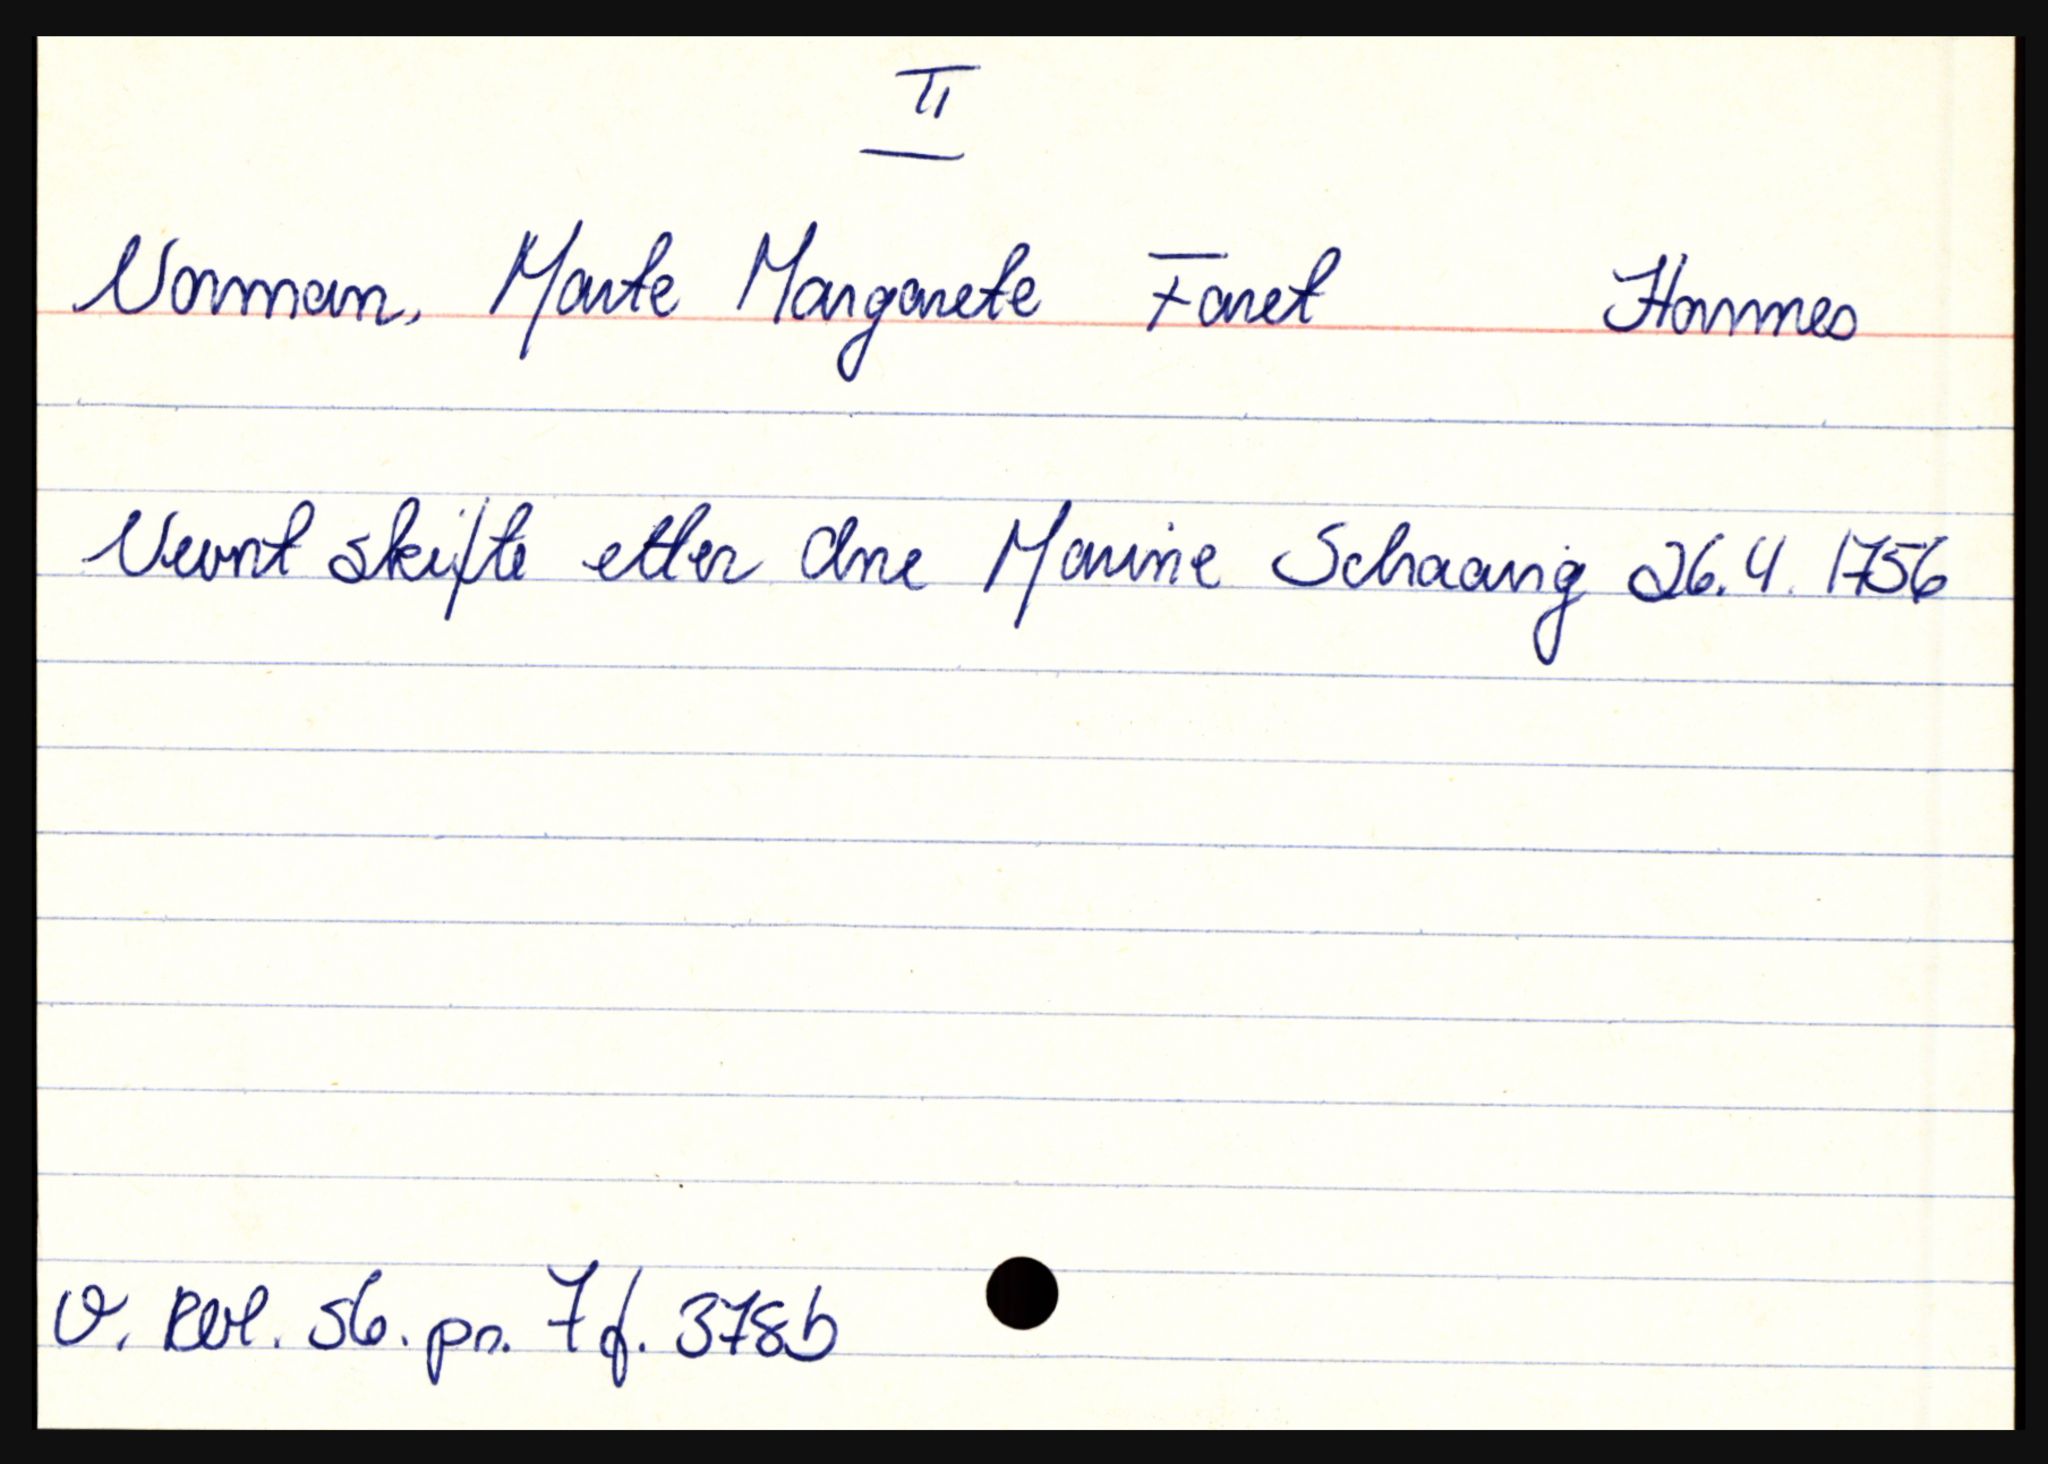 II
Norman, Marte Margarete Faret Hommes
Nevnt skifte etter dne Marine Schaanig 26.4.1756
V. Rbl. sb. pr. 7 f. 378b